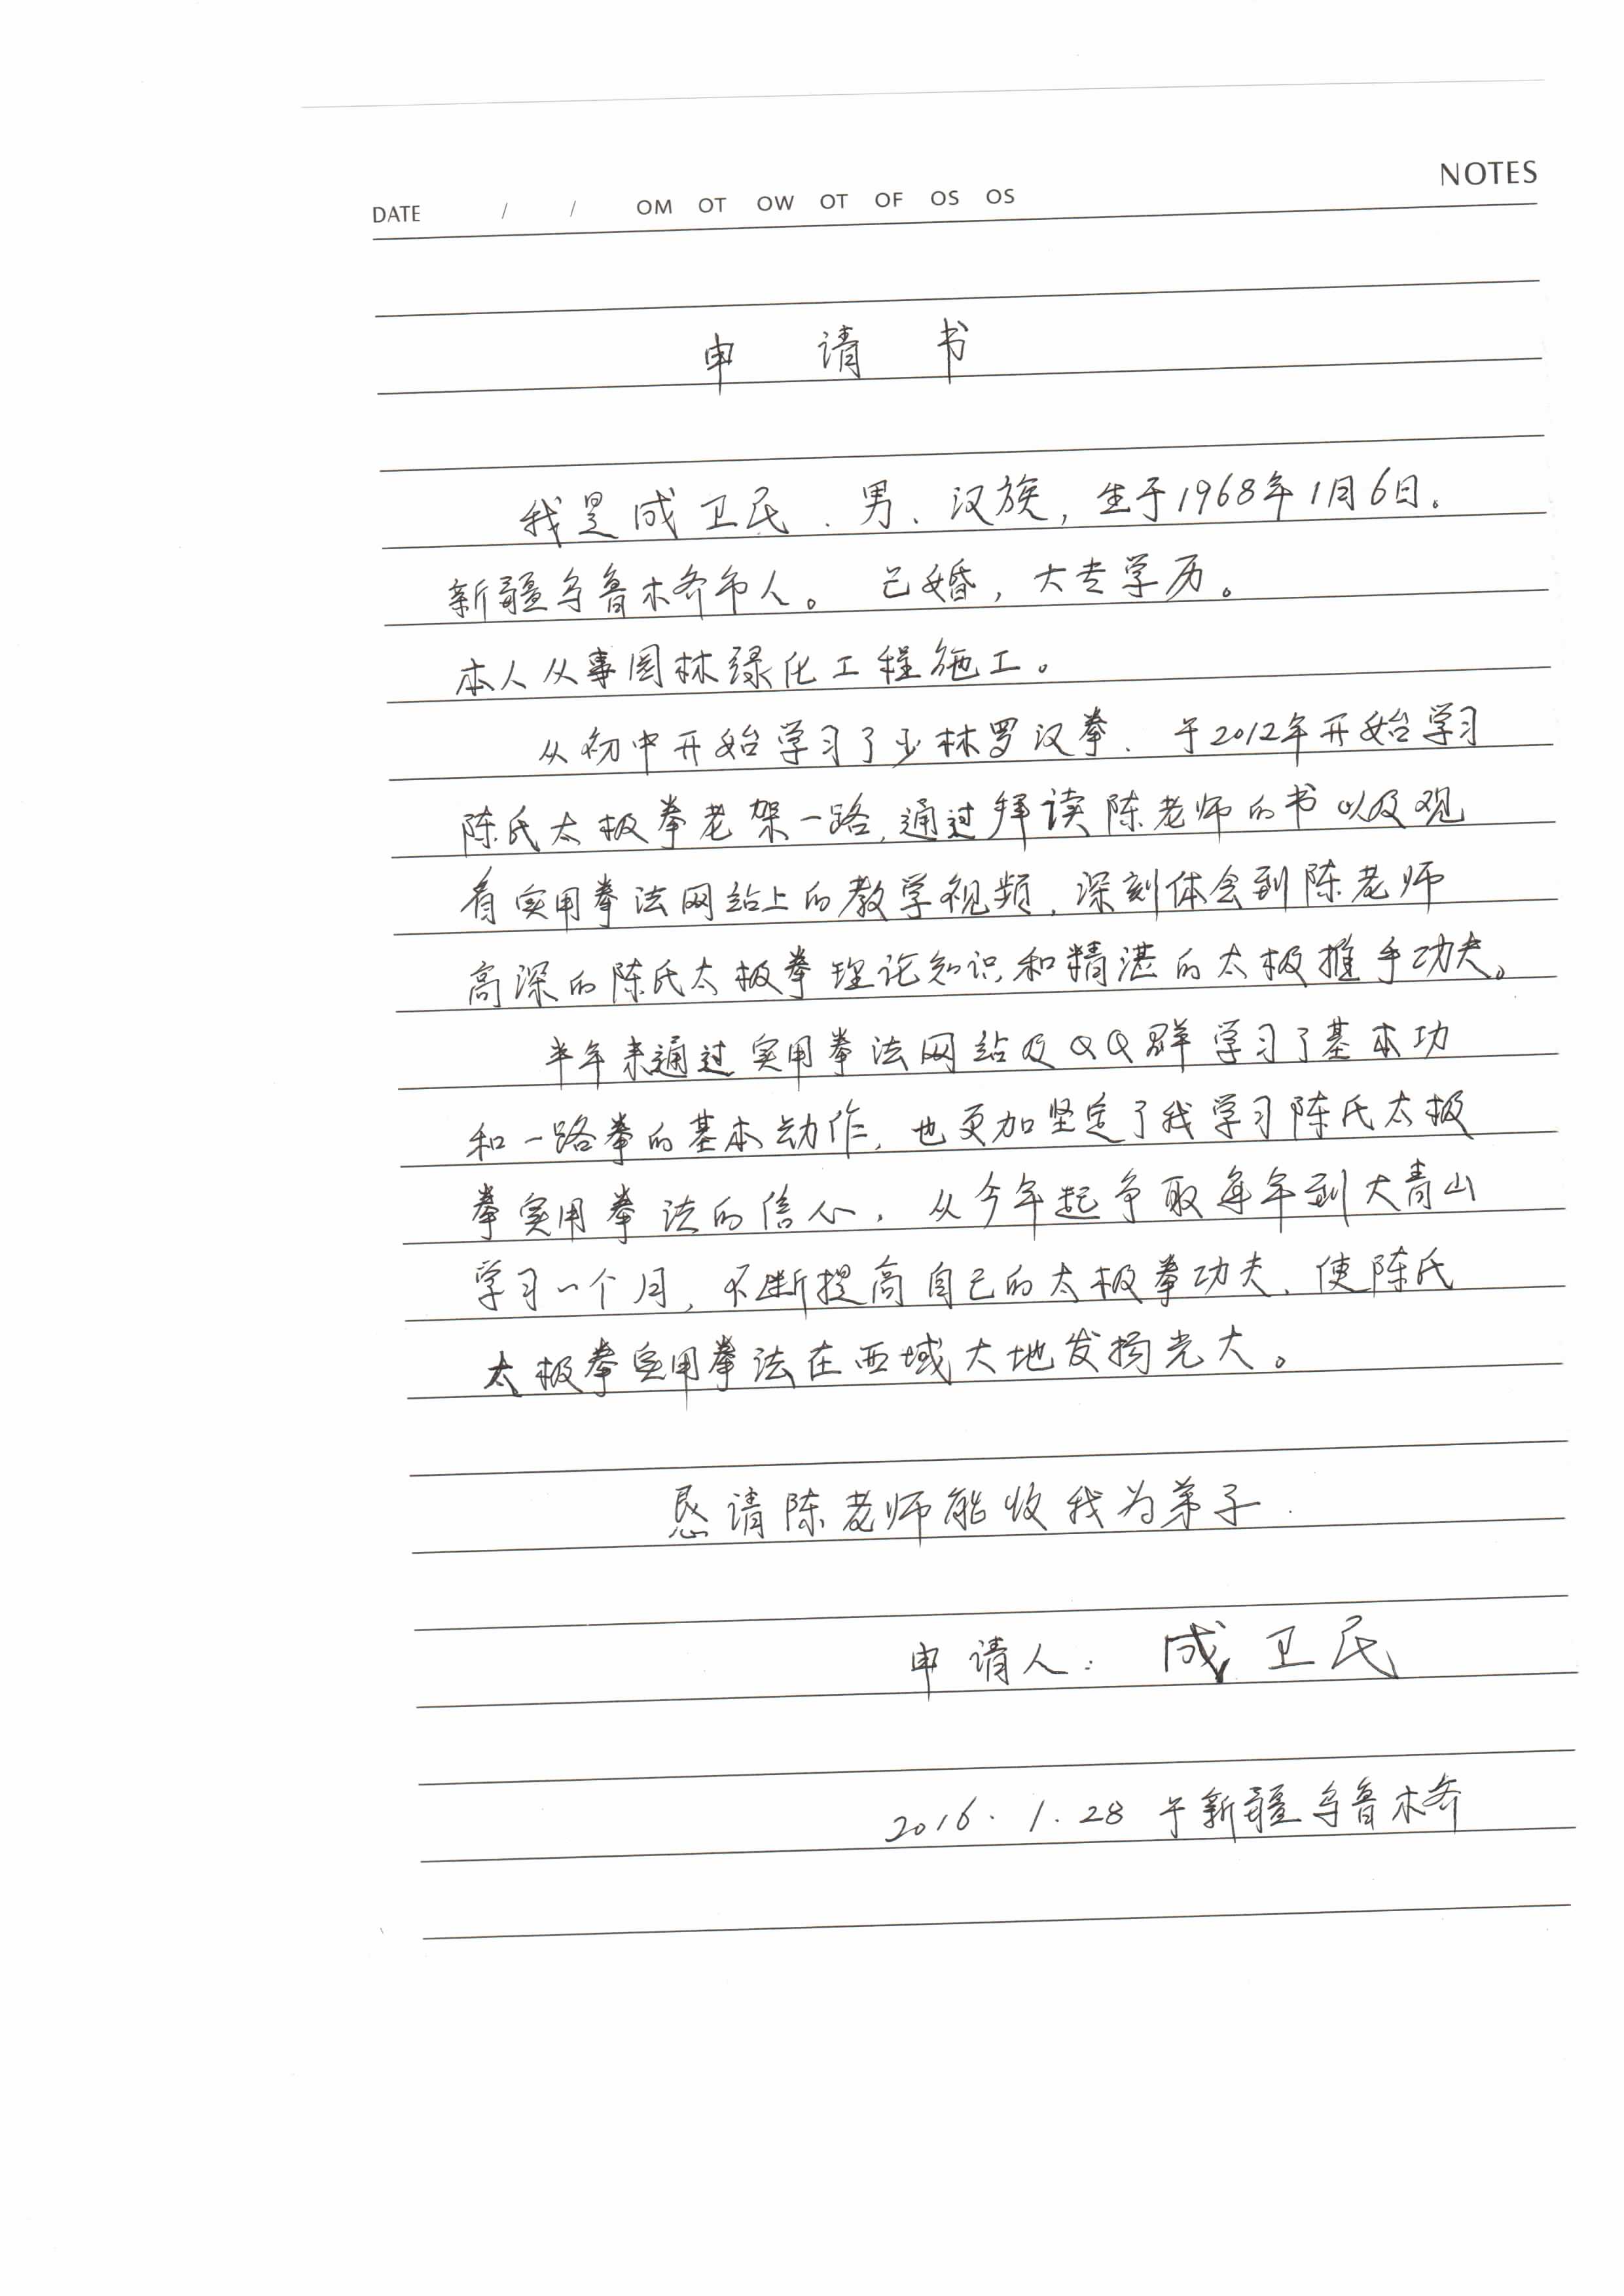 NOTES
DATE / / OM OT OW OT OF OS OS
申请书
我是成卫民、男、汉族，生于1968年1月6日。
新疆乌鲁木齐市人。已婚，大专学历。
本人从事园林绿化工程施工。
从初中开始学习了少林罗汉拳、于2012年开始学习
陈氏太极拳老架一路，通过拜读陈老师的书以及观
看实用拳法网站上的教学视频，深刻体会到陈老师
高深的陈氏太极拳理论知识和精湛的太极推手功夫。
半年来通过实用拳法网站及QQ群学习了基本功
和一路拳的基本动作，也更加坚定了我学习陈氏太极
拳实用拳法的信心，从今年起争取每年到大青山
学习一个月，不断提高自己的太极拳功夫、使陈氏
太极拳实用拳法在西域大地发扬光大。
恳请陈老师能收我为弟子.
申请人：成卫民
2016.1.28于新疆乌鲁木齐